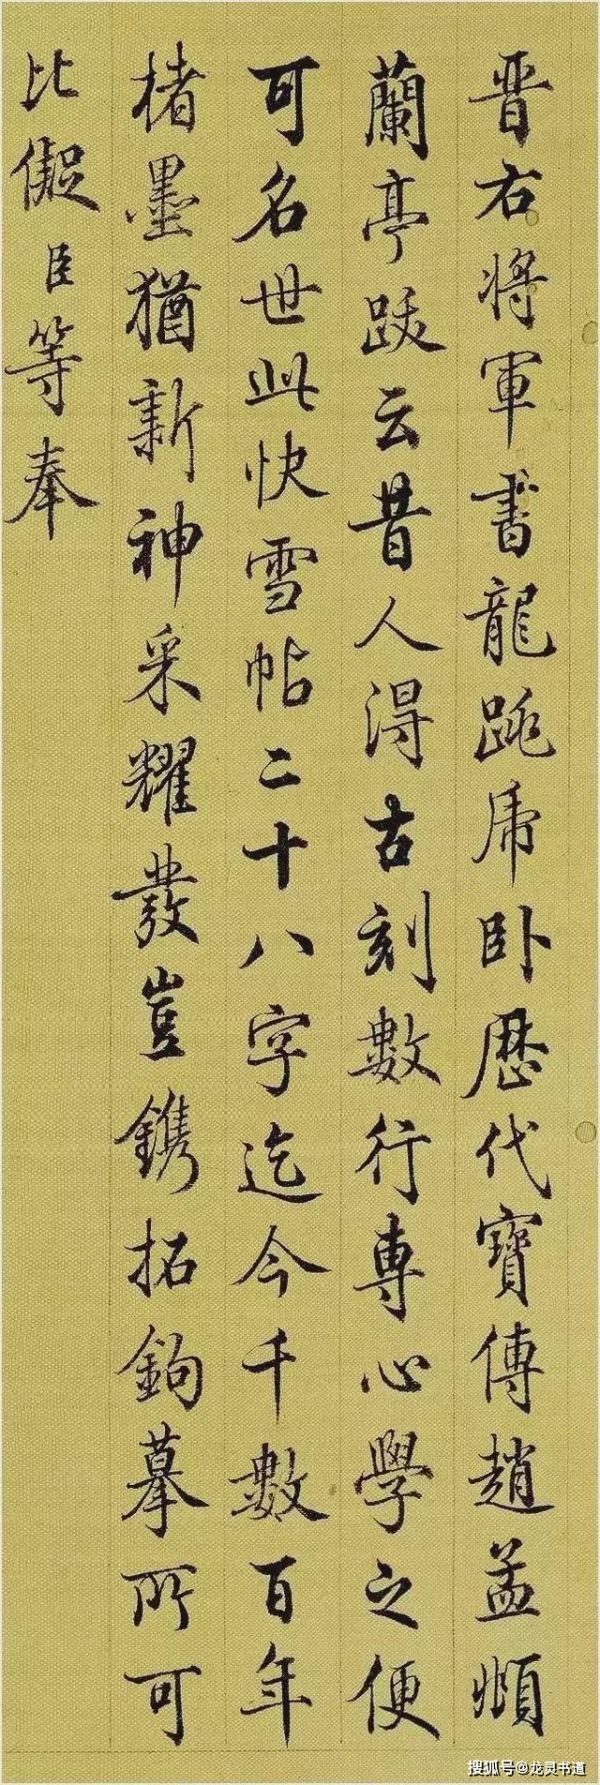 晋右將軍書龍跳虎卧歷代寶傳趙孟頫
蘭亭跋云昔人得古刻數行專心學之便
可名世此快雪帖二十八字迄今千數百年
楮墨猶新神采耀發豈鐫拓鉤摹所可
比儗臣等奉
搜狐号@龙灵书道